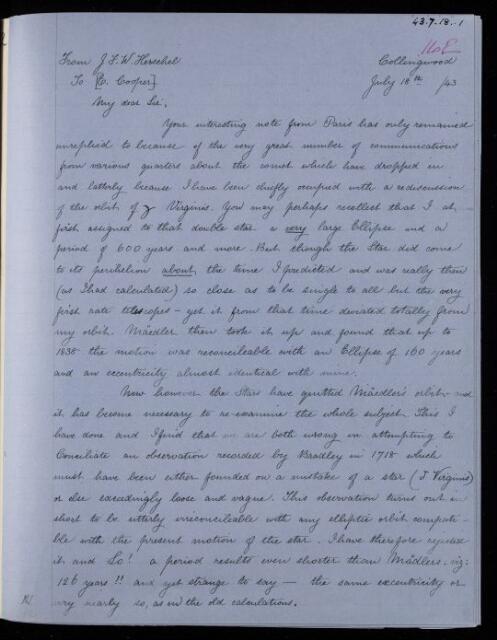 43.7.18.-1
From J F. W. Herschel Collingwood
To [E. Cooper] July 18th /43
My dear Sir,
Your interesting note from Paris has only remained
unreplied to because of the very great number of communications
from various quarters about the comet which have dropped in
and latterly because I have been chiefly occupied with a rediscussion
of the orbit of γ Virginis. You may perhaps recollect that I at
first assigned to that double star a very large Ellipse and a
period of 600 years and more. But though the Star did come
to its perihelion about the time I predicted and was really then
(as I had calculated) so close as to be single to all but the very
first rate telescopes - yet it from that time deviated totally from
my orbit. Mäedler then took it up and found that up to
1838 the motion was reconcileable with an Ellipse of 160 years
and an eccentricity almost identical with mine.
Now however the Stars have quitted Mäedler's orbit and
it has become necessary to re-examine the whole subject. This I
have done and I find that we are both wrong in attempting to
Conciliate an observation recorded by Bradley in 1718 which
must have been either founded on a mistake of a star (Virginis)
or else exceedingly loose and vague. This observation turns out in
short to be utterly irreconcileable with any elliptic orbit compati-
ble with the present motion of the star. I have therefore rejected
it and Lo! a period results even shorter than Mädlers. viz:
126 years!! and yet strange to say — the same excentricity or
very nearly so, as in the old calculations.